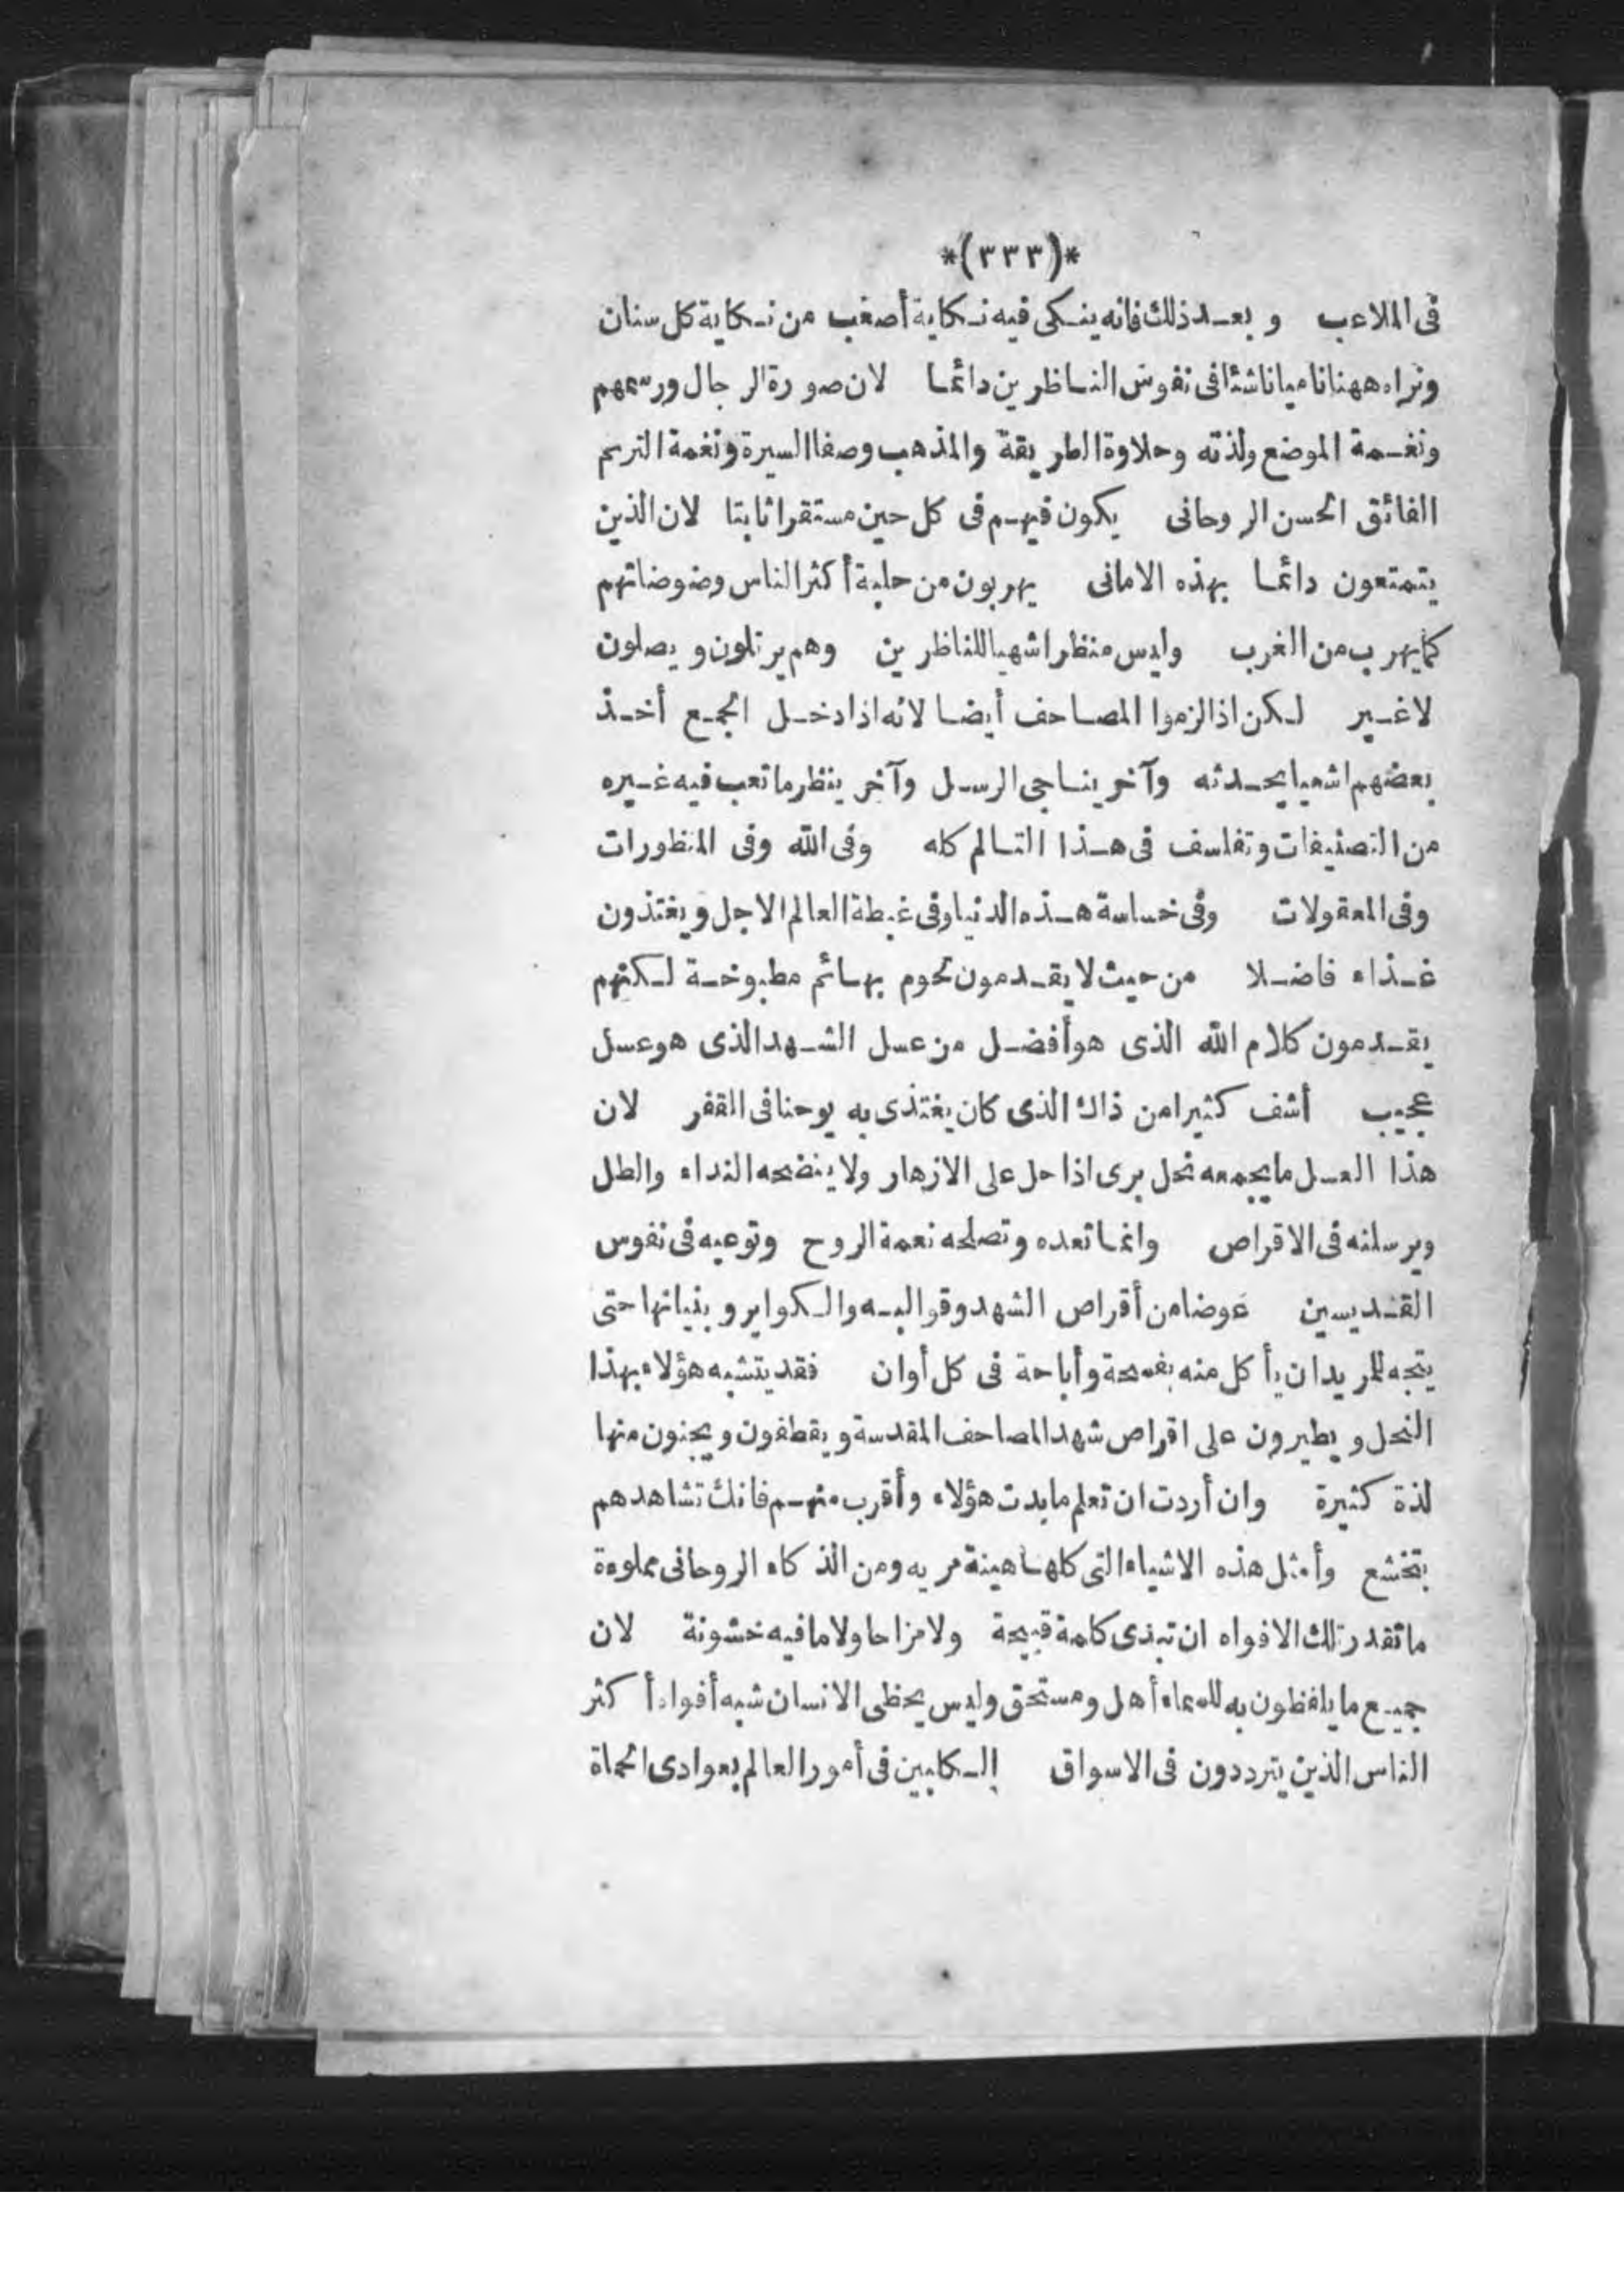 *(٣٣٣)*
فى الملاعب وبعد ذلك فانه ينكى فيه نكاية أصعب من نكاية كل سنان
ونراه ههنا ناميا ناشئا فى نفوس الناظرين دائما لان صورة الرجال ورسمهم
ونغمة الموضع ولذته وحلاوة الطريقة والمذهب وصفا السيرة ونغمة الترنم
الفائق الحسن الروحانى يكون فيهم فى كل حين مستقرا ثابتا لان الذين
يتمتعون دائما بهذه الامانى يهربون من جلبة أكثر الناس وضوضاتهم
كما يهرب من الغرب وليس منظرا شهيا للناظرين وهم يرتلون ويصلون
لا غير لكن اذا لزموا المصاحف أيضا لانه اذا دخل الجمع أخذ
بعضهم اشعيا يحدثه وآخر يناجى الرسل وآخر ينظر ما تعب فيه غيره
من التصنيفات وتفلسف فى هذا التالم كله وفى الله وفى المنظورات
وفى المعقولات وفى خساسة هذه الدنيا وفى غبطة العالم الاجل ويغتذون
غذاء فاضلا من حيث لا يقدمون لحوم بهائم مطبوخة لكنهم
يقدمون كلام الله الذى هو أفضل من عسل الشهد الذى هو عسل
عجيب أشف كثيرا من ذاك الذى كان يغتذى به يوحنا فى القفر لان
هذا العسل ما يجمعه نحل برى اذا حل على الازهار ولا ينضجه النداء والطل
ويرسلنه فى الاقراص وانما تعده وتصلحه نعمة الروح وتوعيه فى نفوس
القديسين عوضا من أقراص الشهد وقوالبه والكواير وبنيانها حتى
يتجه للمريد ان يأكل منه بفسحة وأباحة فى كل أوان فقد يتشبه هؤلاء بهذا
النحل ويطيرون على اقراص شهد المصاحف المقدسة ويقطفون ويجنون منها
لذة كثيرة وان أردت ان تعلم مايدت هؤلاء وأقرب منهم فانك تشاهدهم
بتخشع وأمثل هذه الاشياء التى كلها هينة مريه ومن الذكاء الروحانى مملوءة
ما تقدر تلك الافواه ان تبذى كلمة قبيحة ولا مزاحا ولا ما فيه خشونة لان
جميع ما يلفظون به للسماء أهل ومستحق وليس يخطى الانسان شبه أفواه أكثر
الناس الذين يترددون فى الاسواق الكلبين فى أمور العالم بعوادى الحماة